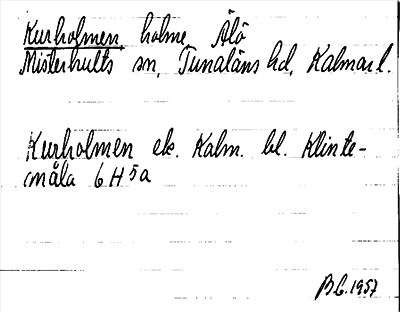 Kurholmen, holme, Älö
Misterhults sn, Tunaläns hd, Kalmar l.
Kurholmen ek. Kalm. bl. Klinte-
måla 6 H 5 a
B.C. 1957